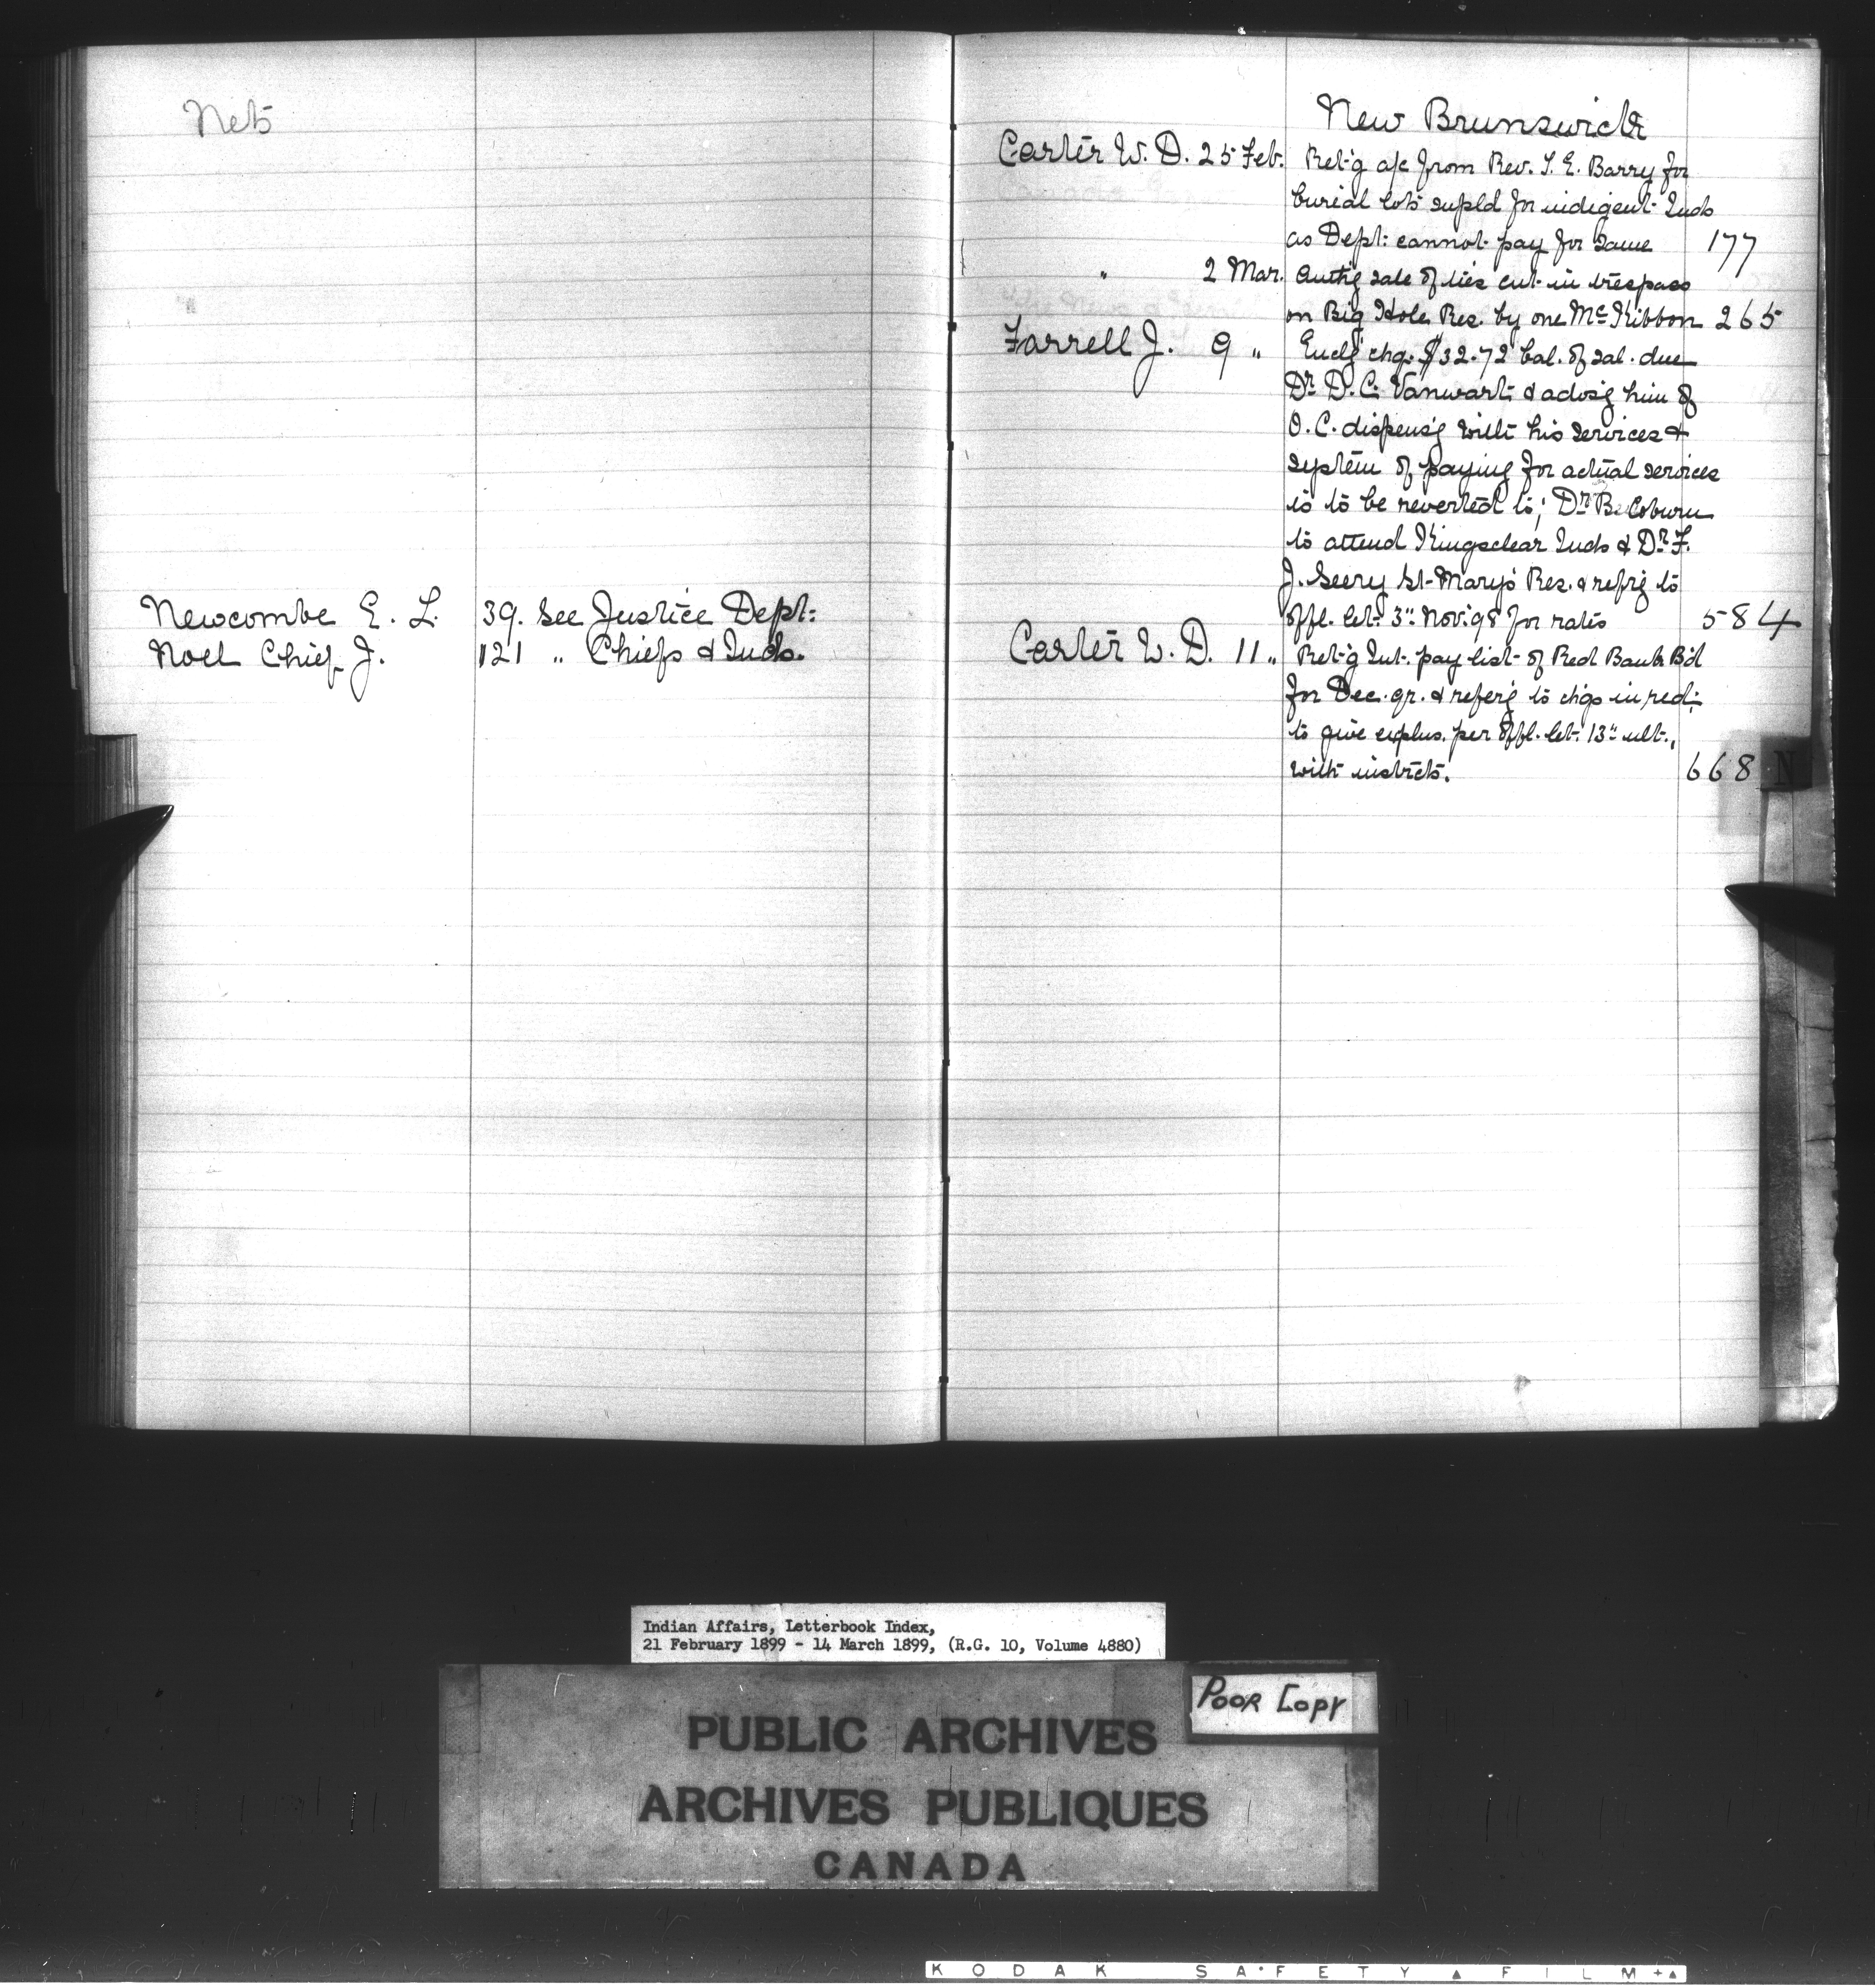 Nets
Newcombe E. L. 39. See Justice Dept:
Noel Chief J. 121 " Chiefs & Inds.
New Brunswick
Carter W. D. 25 Feb. Ret'g a/c from Rev. T. E. Barry for
burial lots supld for indigent Inds
as Dept: cannot pay for same 177
" 2 Mar. Auth'g sale of ties cut in trespass
on Big Hole Res. by one McKibbon 265
Farrell J. 9 " Encl'g chq. $32.72 bal. of sal. due
Dr. D. C. Vanwart & advs'g him of
O. C. dispens'g with his services &
system of paying for actual services
is to be reverted to; Dr. B. Coburn
to attend Kingsclear Inds & Dr. F.
J. Seery St. Mary's Res. & refr'g to
offl. let. 3" Nov: 98 for rates 584
Carter W. D. 11 " Ret'g Int. pay-list of Red Bank B'd
for Dec. qr. & refer'g to chqs in red:
to give explns. per offl. let. 13" ult.,
with instrcts. 668
N
Indian Affairs, Letterbook Index,
21 February 1899 - 14 March 1899, (R.G. 10, Volume 4880)
POOR COPY
PUBLIC ARCHIVES
ARCHIVES PUBLIQUES
CANADA
KODAK SAFETY FILM